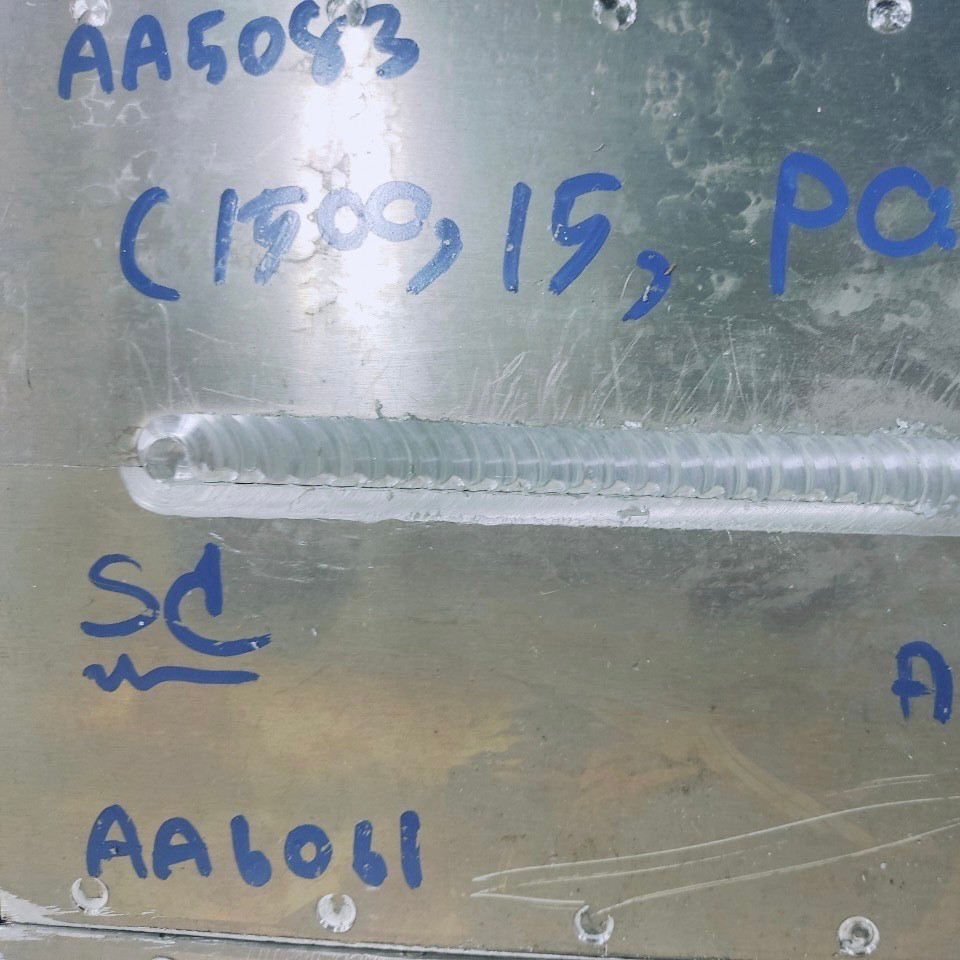 AA5083
(1500, 15, PC
SC
A
AA6061